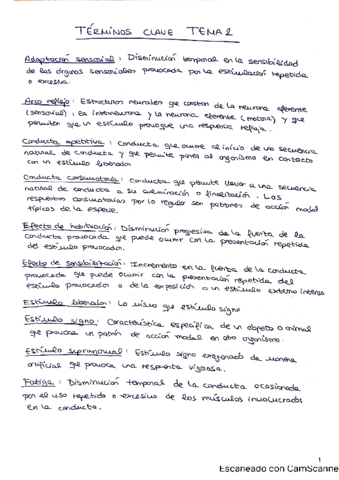 TÉRMINOS CLAVE TEMA 2
Adaptación sensorial: Disminución temporal en la sensibilidad
de los órganos sensoriales provocada por la estimulación repetida
o excesiva.
Arco reflejo: Estructuras neurales que constan de la neurona aferente
(sensorial), la interneurona y la neurona eferente (motora) y que
permiten que un estímulo provoque una respuesta refleja.
Conducta apetitiva: Conducta que ocurre al inicio de una secuencia
natural de conducta y que permite poner al organismo en contacto
con un estímulo liberador
Conducta consumatoria: Conducta que permite llevar a una secuencia
natural de conducta a su culminación o finalización. Las
respuestas consumatorias por lo regular son patrones de acción modal
típicos de la especie.
Efecto de habituación: Disminución progresiva de la fuerza de la
conducta provocada que puede ocurrir con la presentación repetida
del estímulo provocador.
Efecto de sensibilización: Incremento en la fuerza de la conducta
provocada que puede ocurrir con la presentación repetida del
estímulo provocador o de la exposición a un estímulo externo intenso
Estímulo liberador: Lo mismo que estímulo signo
Estímulo signo: Característica específica de un objeto o animal
que provoca un patrón de acción modal en otro organismo.
Estímulo supranormal: Estímulo signo exagerado de manera
artificial que provoca una respuesta vigorosa.
Fatiga: Disminución temporal de la conducta ocasionada
por el uso repetido o excesivo de los músculos involucrados
en la conducta.
1
Escaneado con CamScanne